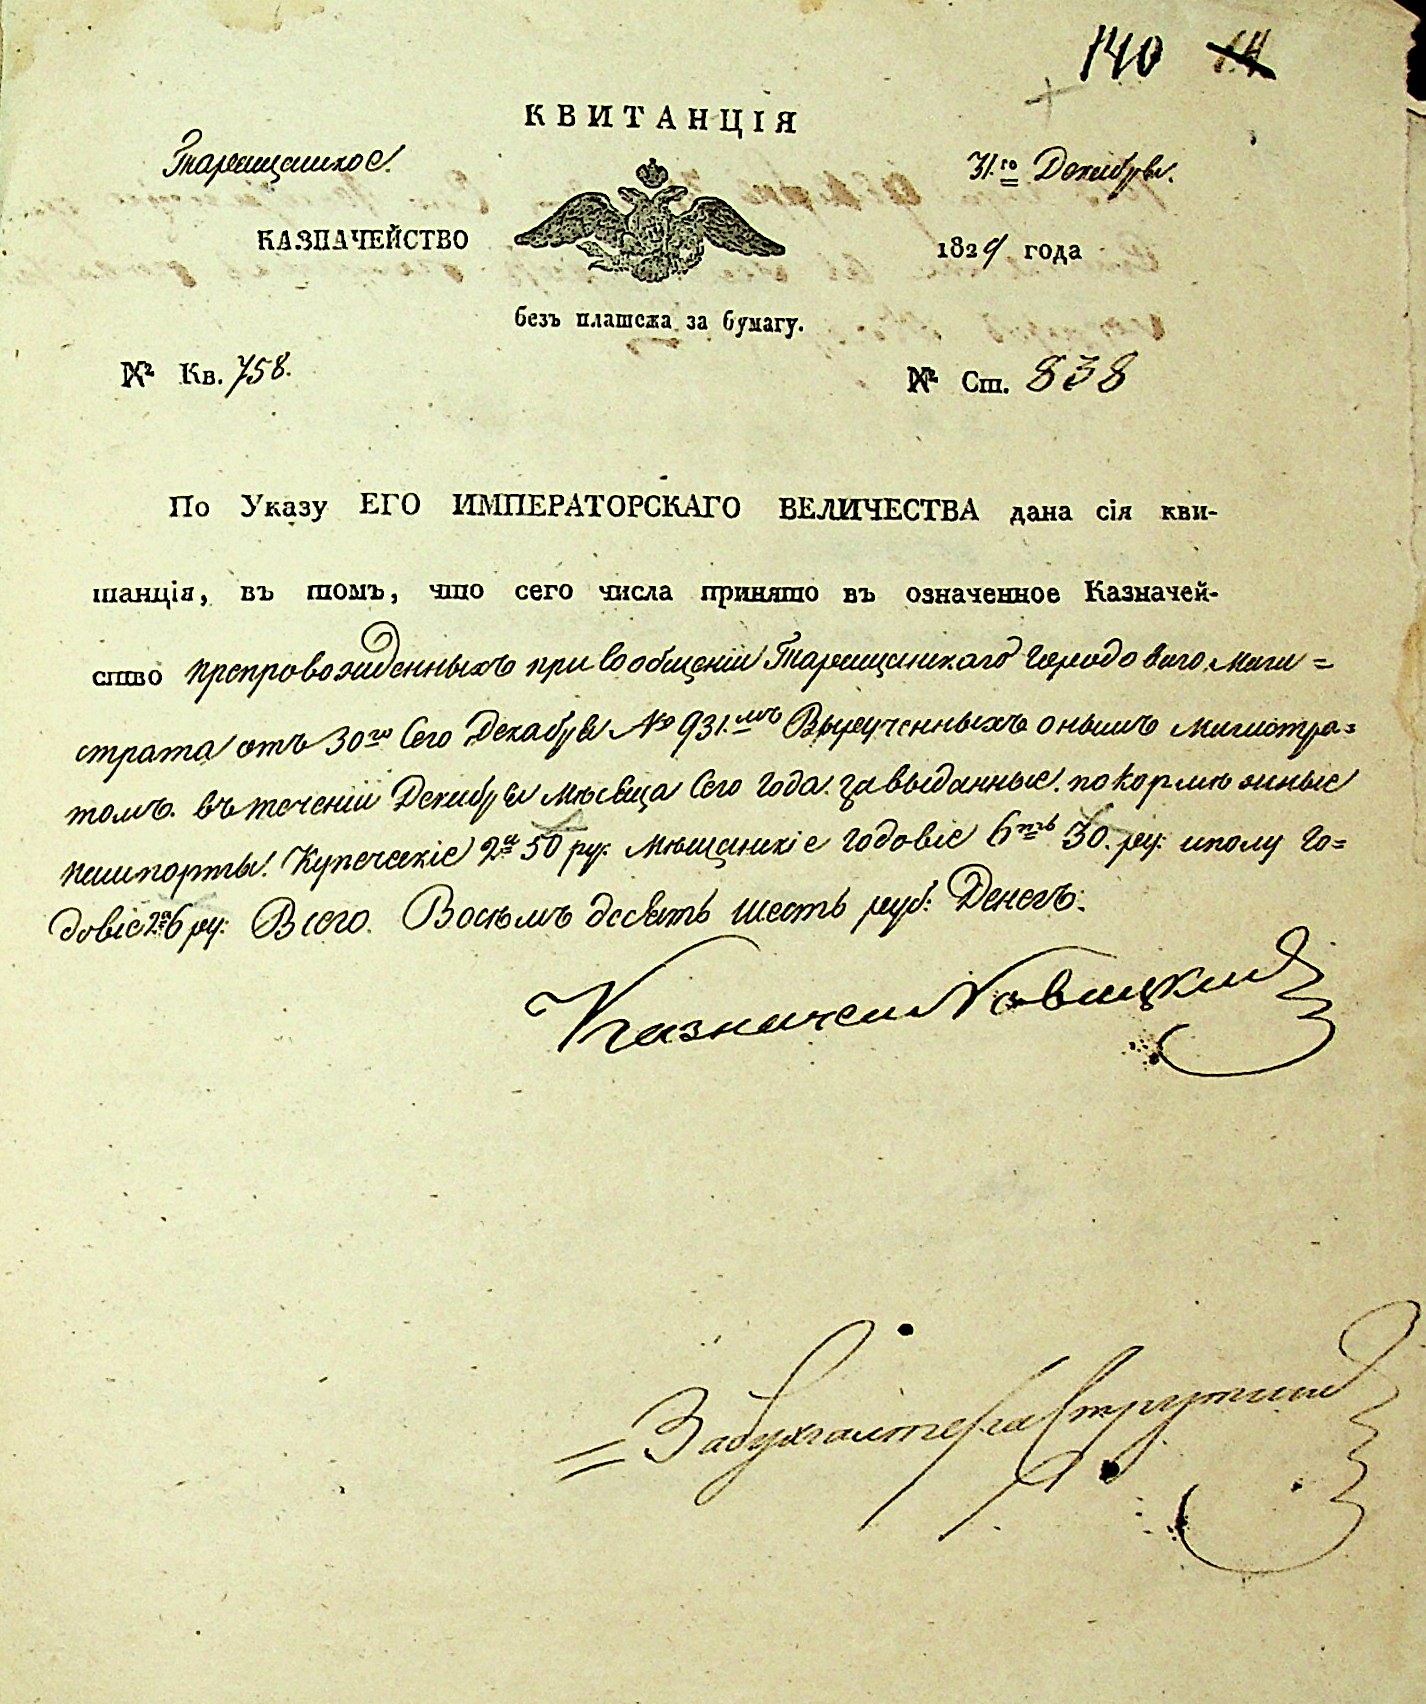 140 14
КВИТАНЦІЯ
Таращанское 31го Декабря.
КАЗНАЧЕЙСТВО 1829 года
безъ платежа за бумагу.
№ Кв. 758. № Ст. 838
По Указу ЕГО ИМПЕРАТОРСКАГО ВЕЛИЧЕСТВА дана сія кви-
танція, въ томъ, что сего числа принято въ означенное Казначей-
ство препровожденныхъ при Сообщеніи Таращанскаго Городоваго Маги=
страта отъ 30го Сего Декабря № 931.мъ Вырученныхъ онымъ Магистра=
томъ. въ теченіи Декабря Мѣсяца Сего Года. за выданные. покормежные
пашпорты. Купеческіе 2а 50 ру: Мѣщанскіе годовіе 6ть 30. ру: иполу го=
довіе 2а 6 ру: Всего. Восемъ десять шесть руб: Денегъ.
Казначей Новицкий
= Забухгалтера